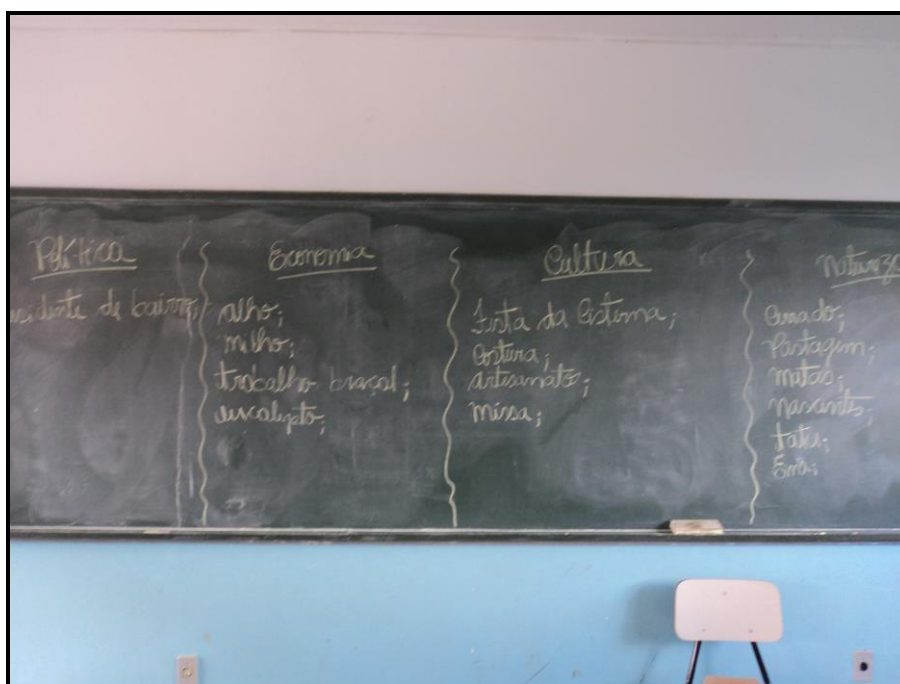 Política
sidente de bairro;
Economia
alho;
milho;
trabalho braçal;
eucalipto;
Cultura
Festa da Cisterna;
Costura;
artesanato;
missa;
Naturez
Cerrado;
Pastagem;
matas;
nascentes;
tatu;
Ema;